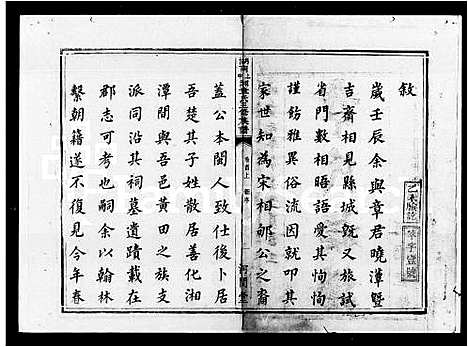 敘
歲壬辰余與章君曉潭暨
吉齋相見縣城既又旅試
省門數相晤語愛其恂恂
謹飭雅異俗流因就問其
家世知為宋相郇公之裔
河間堂
蓋公本閩人致仕後卜居
吾楚其子姓散居善化湘
潭間與吾邑黃田之族支
派同沿其祠墓遺蹟載在
郡志可考也嗣余以翰林
繫朝籍遂不復見今年春